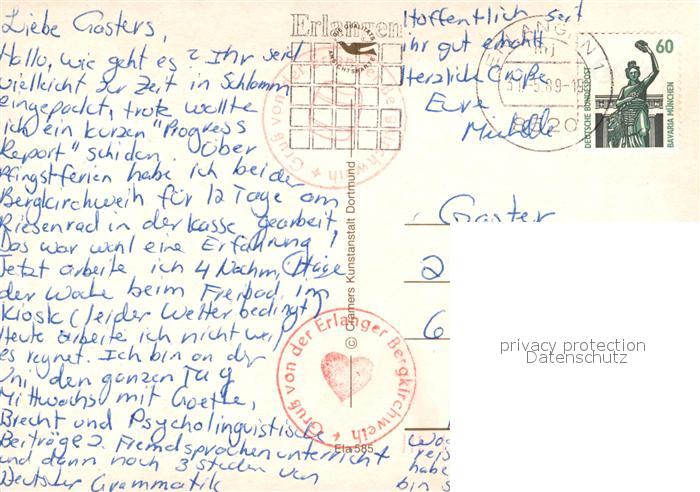 Liebe Gasters,
Hallo, wie geht es? Ihr seid
vielleicht zur Zeit in Schlamm
eingepackt, trotz wollte
ich ein kurzen "Progress
Report" schiden. Über
Pfingstferien habe ich bei der
Bergkirchweih für 12 Tage am
Riesenrad in der Kasse gearbeit.
Das war wohl eine Erfahrung!
Jetzt arbeite ich 4 Nachm/Tage
der Woche beim Freibad im
Kiosk (leider Wetter bedingt)
Heute arbeite ich nicht weil
es regnet. Ich bin an der
Uni den ganzen Tag
Mittwochs mit Goethe,
Brecht und Psycholinguistische
Beiträge z. Fremdsprachenunterricht
und dann noch 3 studen von
Deutster Grammatik
Hoffentlich seit
ihr gut erholt
Herzlich Grüße
Eure
Michelle
Erlangen
ERLANGEN 1
8520
60
DEUTSCHE BUNDESPOST
BAVARIA MÜNCHEN
Gaster
2
6
privacy protection
Datenschutz
© Cramers Kunstanstalt Dortmund
Gruß von der Erlanger Bergkirchweih
Gruß von der Erlanger Bergkirchweih
Ela 585
habe
bin s